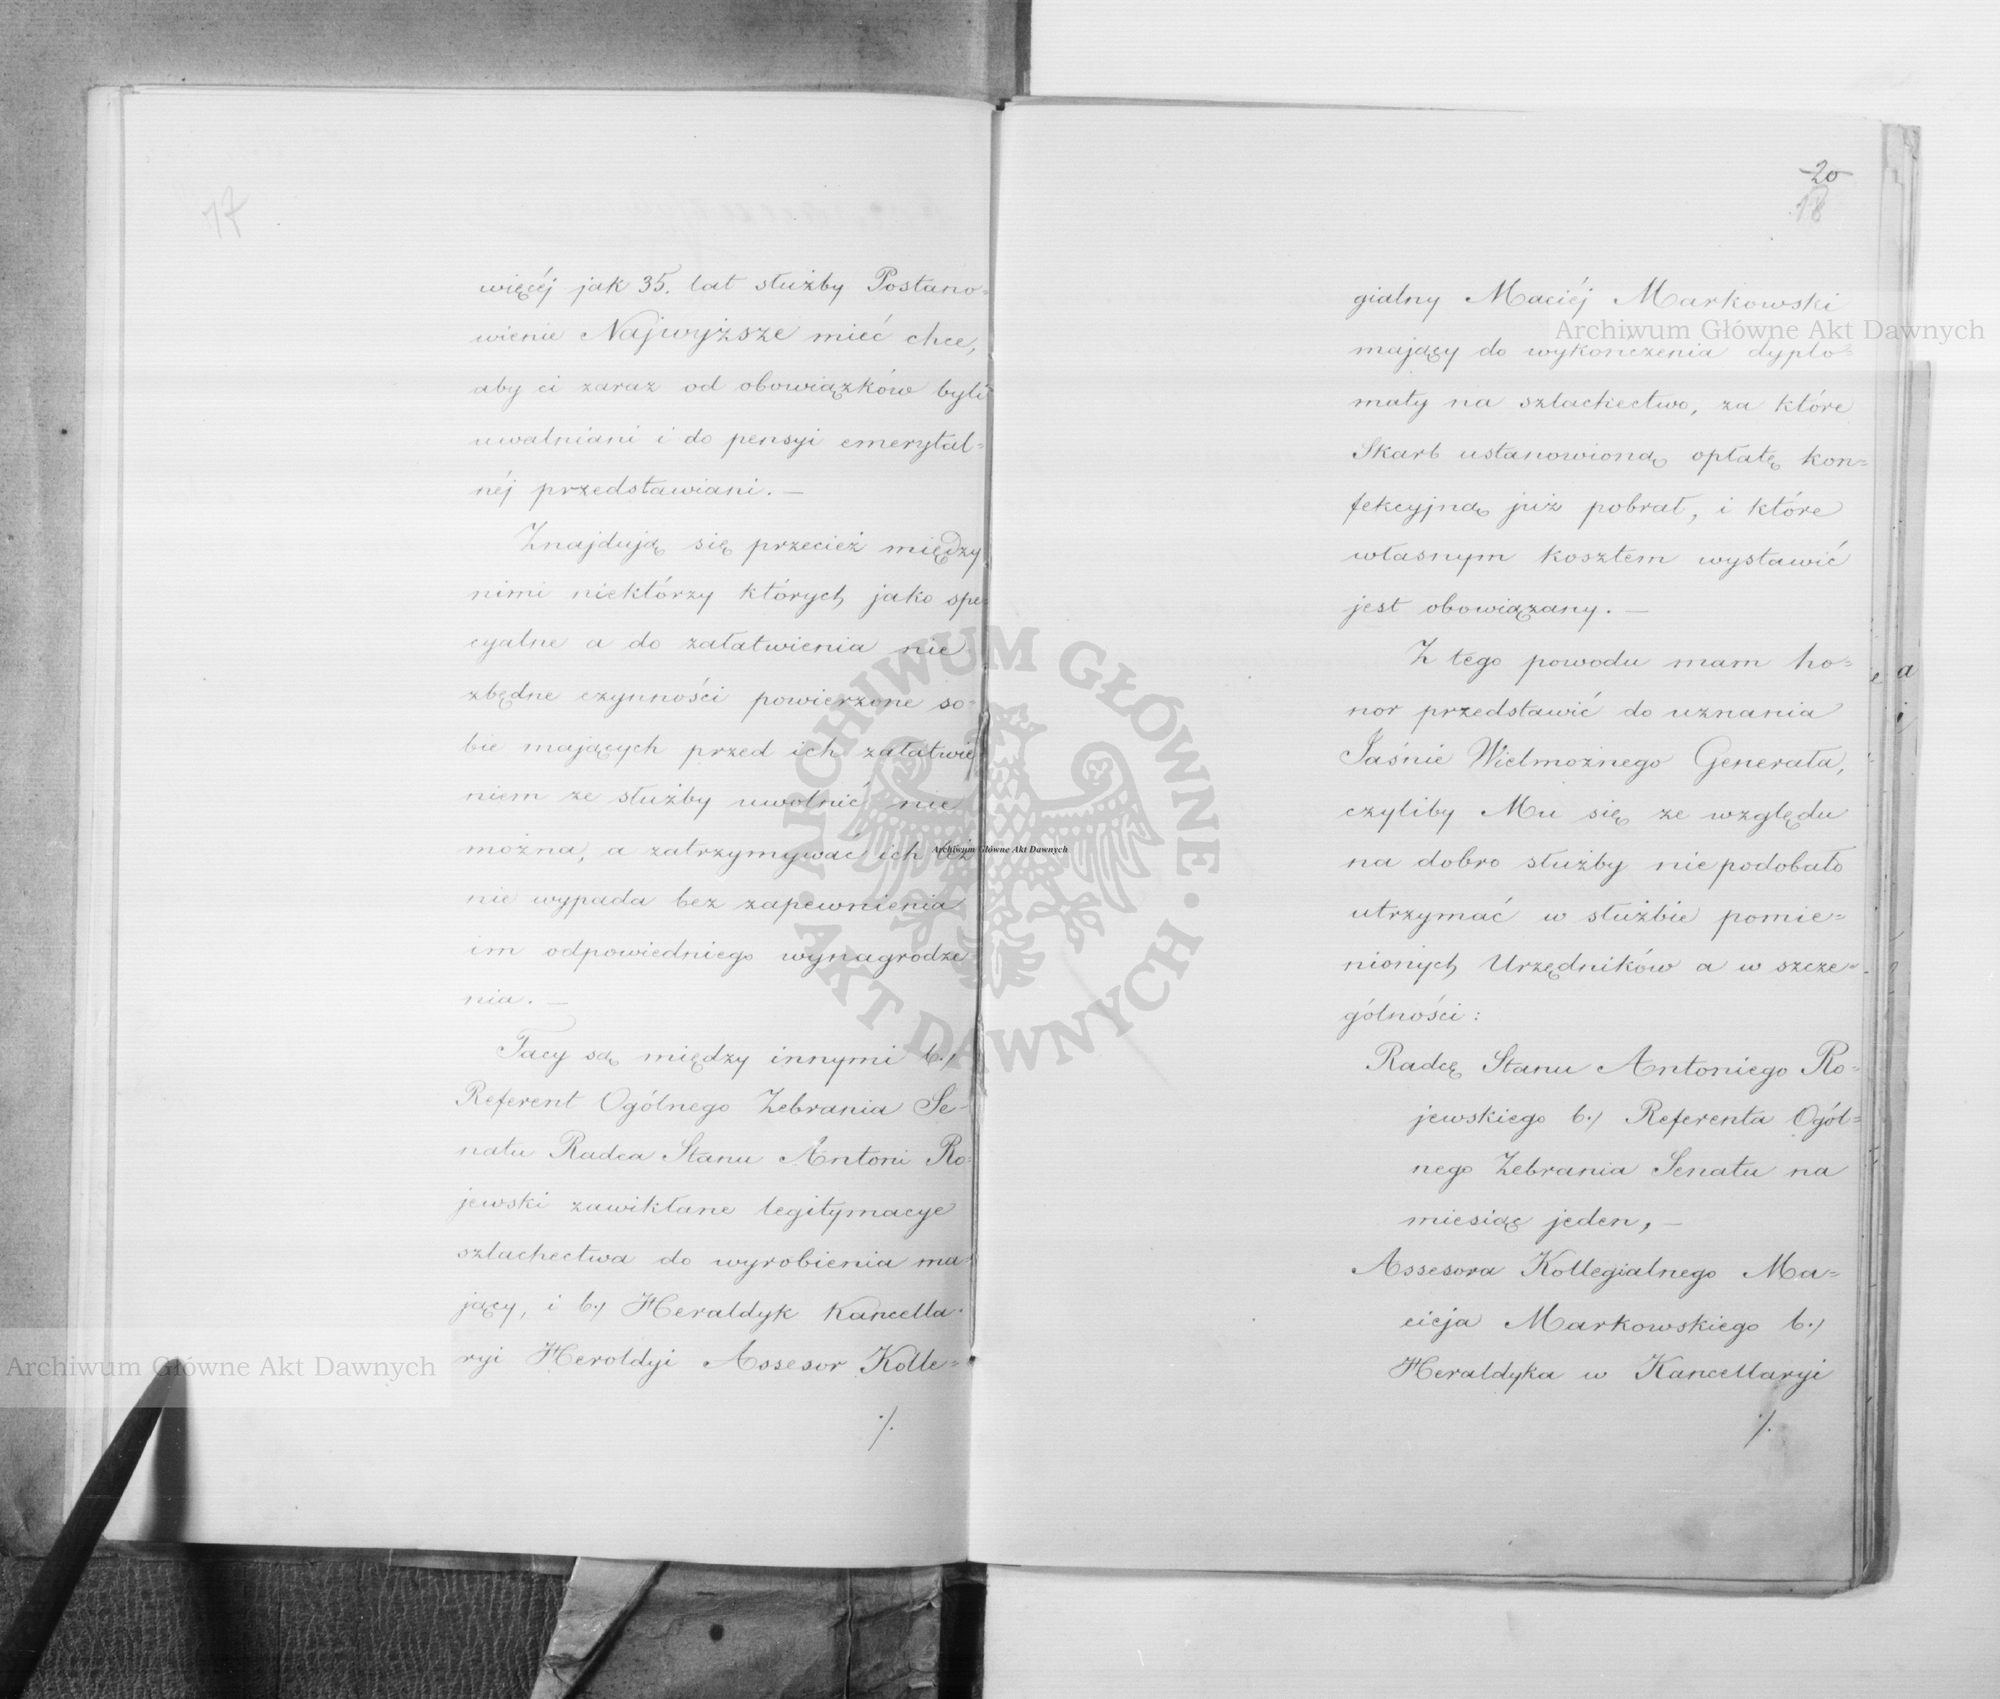 17
więcéj jak 35. lat służby Postano=
wienie Najwyższe mieć chce,
aby ci zaraz od obowiązków byli
uwalniani i do pensyi emerytal=
néj przedstawiani. —
Znajdują się przecież między
nimi niektórzy których jako spe=
cyalne a do załatwienia nie
zbędne czynności powierzone so=
bie mających przed ich załatwie
niem ze służby uwolnić nie
można, a zatrzymywać ich też
nie wypada bez zapewnienia
im odpowiedniego wynagrodze
nia. —
Tacy są między innymi b./
Referent Ogólnego Zebrania Se=
natu Radca Stanu Antoni Ro=
jewski zawikłane legitymacye
szlachectwa do wyrobienia ma=
jący, i b./ Heraldyk Kancella=
ryi Heroldyi Assesor Kolle=
./.
20
18
gialny Maciéj Markowski
mający do wykończenia dyplo=
maty na szlachectwo, za które
Skarb ustanowioną opłatę kon=
fekcyjną już pobrał, i które
własnym kosztem wystawić
jest obowiązany. —
Z tego powodu mam ho=
nor przedstawić do uznania
Jaśnie Wielmożnego Generała,
czyliby Mu się ze względu
na dobro służby niepodobało
utrzymać w służbie pomie=
nionych Urzędników a w szcze=
gólności:
Radcę Stanu Antoniego Ro=
jewskiego b./ Referenta Ogól=
nego Zebrania Senatu na
miesiąc jeden, —
Assesora Kollegialnego Ma=
cieja Markowskiego b./
Heraldyka w Kancellaryi
./.
Archiwum Główne Akt Dawnych
Archiwum Główne Akt Dawnych
Archiwum Główne Akt Dawnych
ARCHIWUM GŁÓWNE · AKT DAWNYCH ·